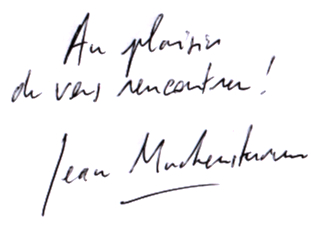 Au plaisir
de vous rencontrer !
Jean